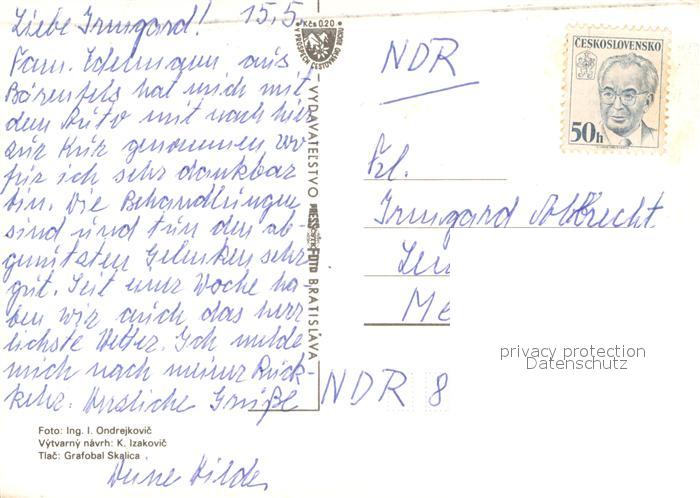 Liebe Irmgard! 15.5.
Fam. Edelmann aus
Bärenfels hat mich mit
dem Auto mit nach hier
zur Kur genommen, wo
für ich sehr dankbar
bin. Die Behandlungen
sind und tun den ab-
genützten Gelenken sehr
gut. Seit einer Woche ha-
ben wir auch das herr-
lichste Wetter. Ich melde
mich nach meiner Rück-
kehr. Herzliche Grüße
Hilde
Foto: Ing. I. Ondrejkovič
Výtvarný návrh: K. Izakovič
Tlač: Grafobal Skalica
Kčs 0.20
VYDAVATEĽSTVO PRESSFOTO BRATISLAVA
ČESKOSLOVENSKO
50h
NDR
Frl.
Irmgard Albrecht
Me
NDR 8
privacy protection
Datenschutz